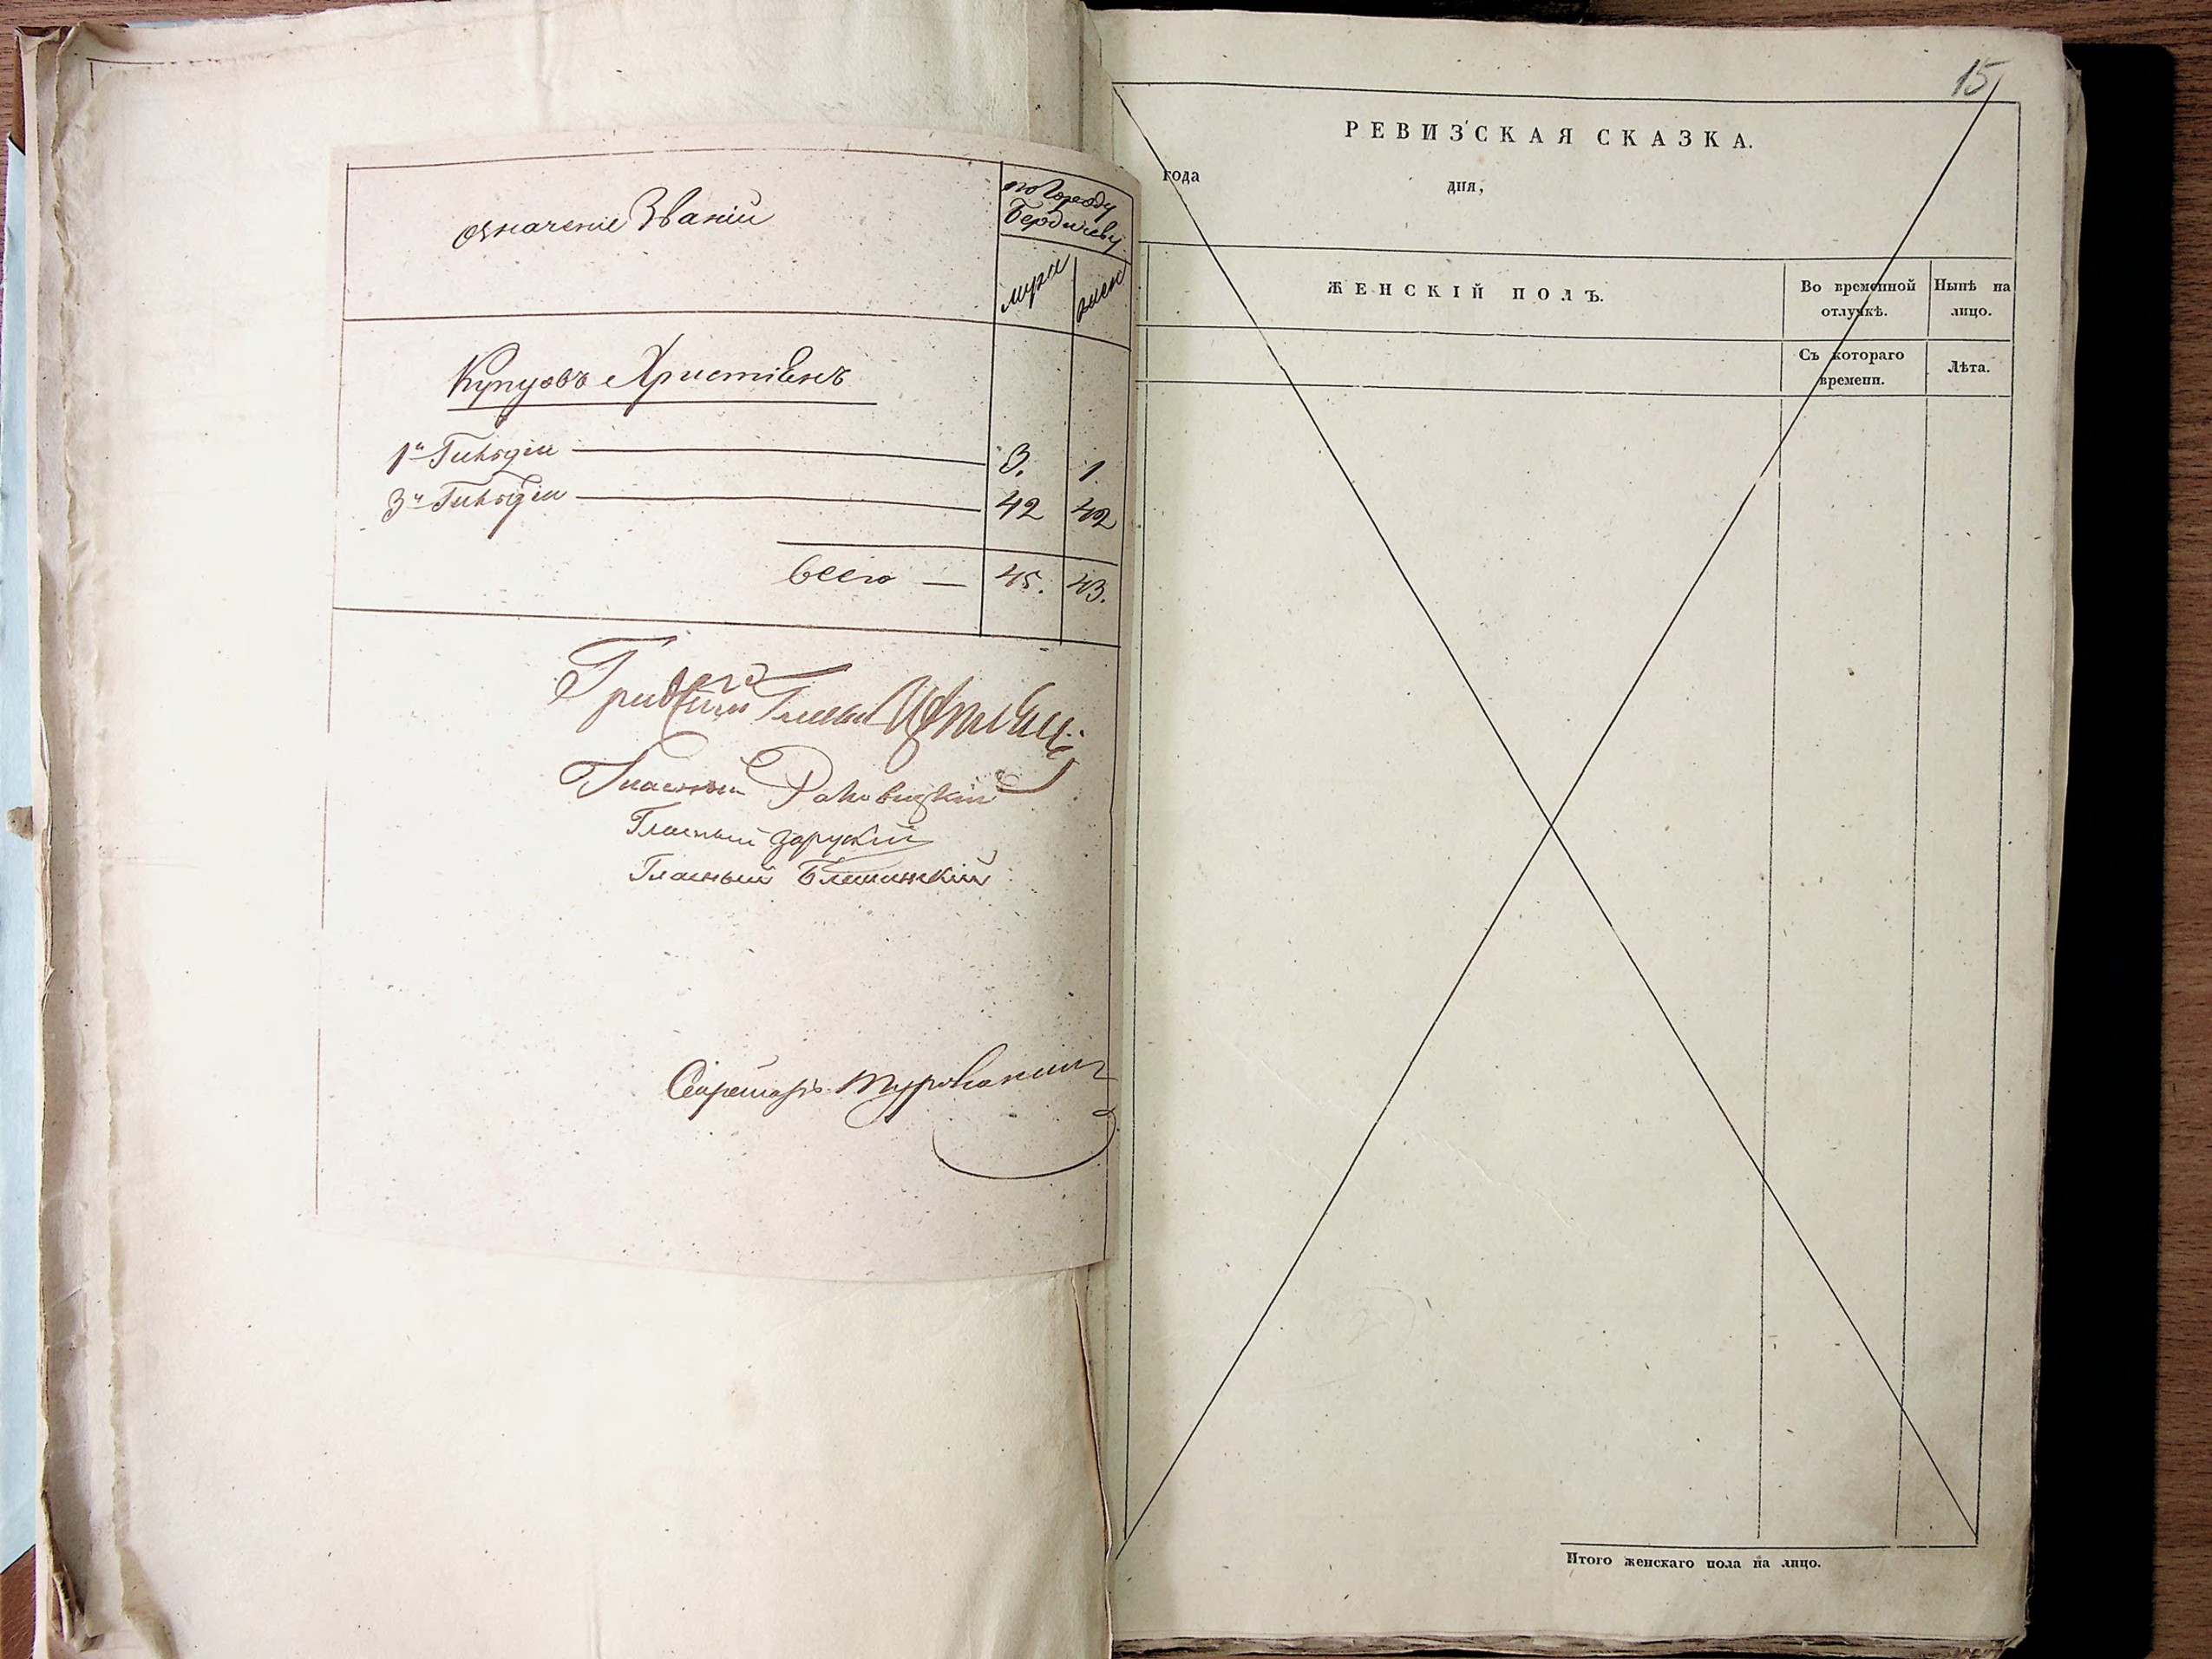 означеніе Званій
по Городу
Бердичеву
муж
жен
Купцовъ Христіянъ
1й Гильдіи 3. 1.
3й Гильдіи 42 42
всего — 45. 43.
Гласный Раковицкій
Гласный Зарускій
Гласный
Секретарь
15
РЕВИЗСКАЯ СКАЗКА.
года дня,
ЖЕНСКІЙ ПОЛЪ.
Во временной отлучкѣ.
Нынѣ на лицо.
Съ котораго времени.
Лѣта.
Итого женскаго пола на лицо.